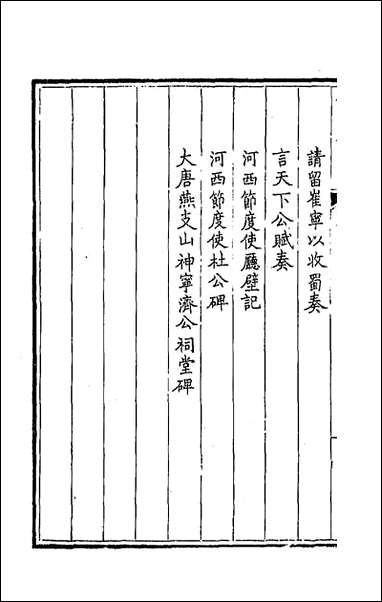 請留崔寧以收蜀奏
言天下公賦奏
河西節度使廳壁記
河西節度使杜公碑
大唐燕支山神寧濟公祠堂碑